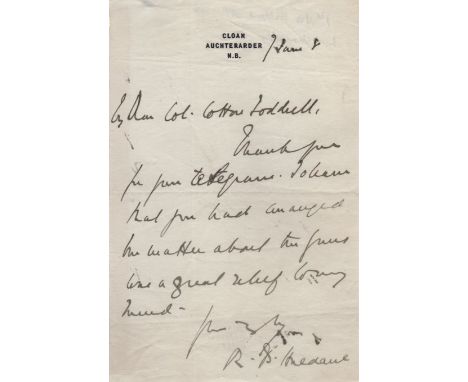 CLOAN
AUCHTERARDER
N.B.
7 Jan 8
My Dear Col. Cotton Joddrell,
Thank you
for your telegram. To have
that you had arranged
the matter about the guns
was a great relief to my
mind -
Yours
R. B. Haldane